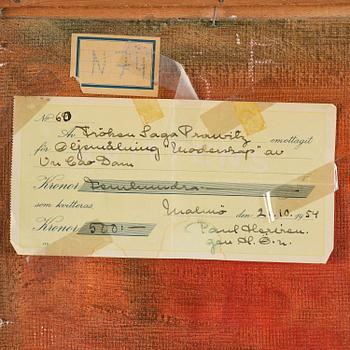 N 74
No 60
Av Fröken Saga Prawitz emottagit
för Oljemålning "Moderskap" av
Vu Cao Dam
Kronor Femhundra
som kvitteras. Malmö den 21.10.1954
Kronor 500:- Paul
gm H. Ö-n.